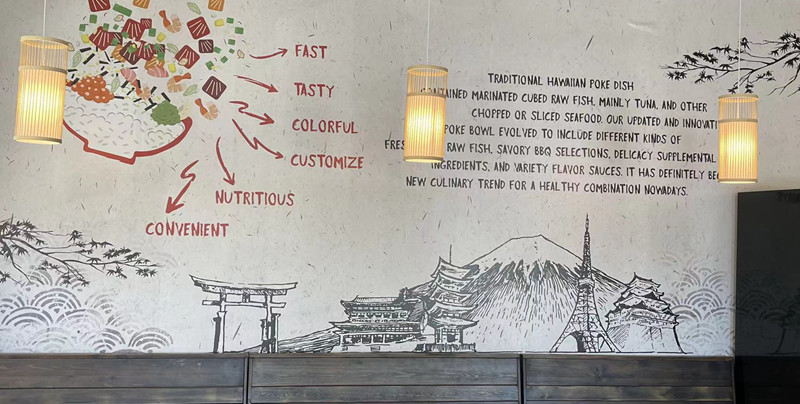 FAST
TASTY
COLORFUL
CUSTOMIZE
NUTRITIOUS
CONVENIENT
TRADITIONAL HAWAIIAN POKE DISH
MARINATED CUBED RAW FISH, MAINLY TUNA, AND OTHER
CHOPPED OR SLICED SEAFOOD. OUR UPDATED AND
POKE BOWL EVOLVED TO INCLUDE DIFFERENT KINDS OF
RAW FISH, SAVORY BBQ SELECTIONS, DELICACY SUPPLEMENTAL
INGREDIENTS, AND VARIETY FLAVOR SAUCES. IT HAS DEFINITELY
NEW CULINARY TREND FOR A HEALTHY COMBINATION NOWADAYS.